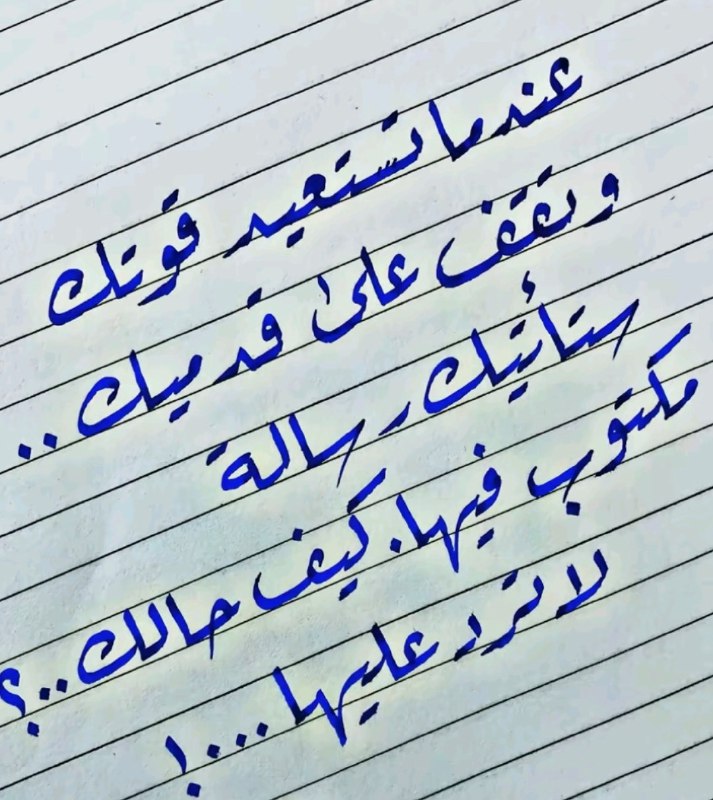 عندما تستعيد قوتك
وتقف على قدميك..
ستأتيك رسالة
مكتوب فيها. كيف حالك..؟
لا ترد عليها....!